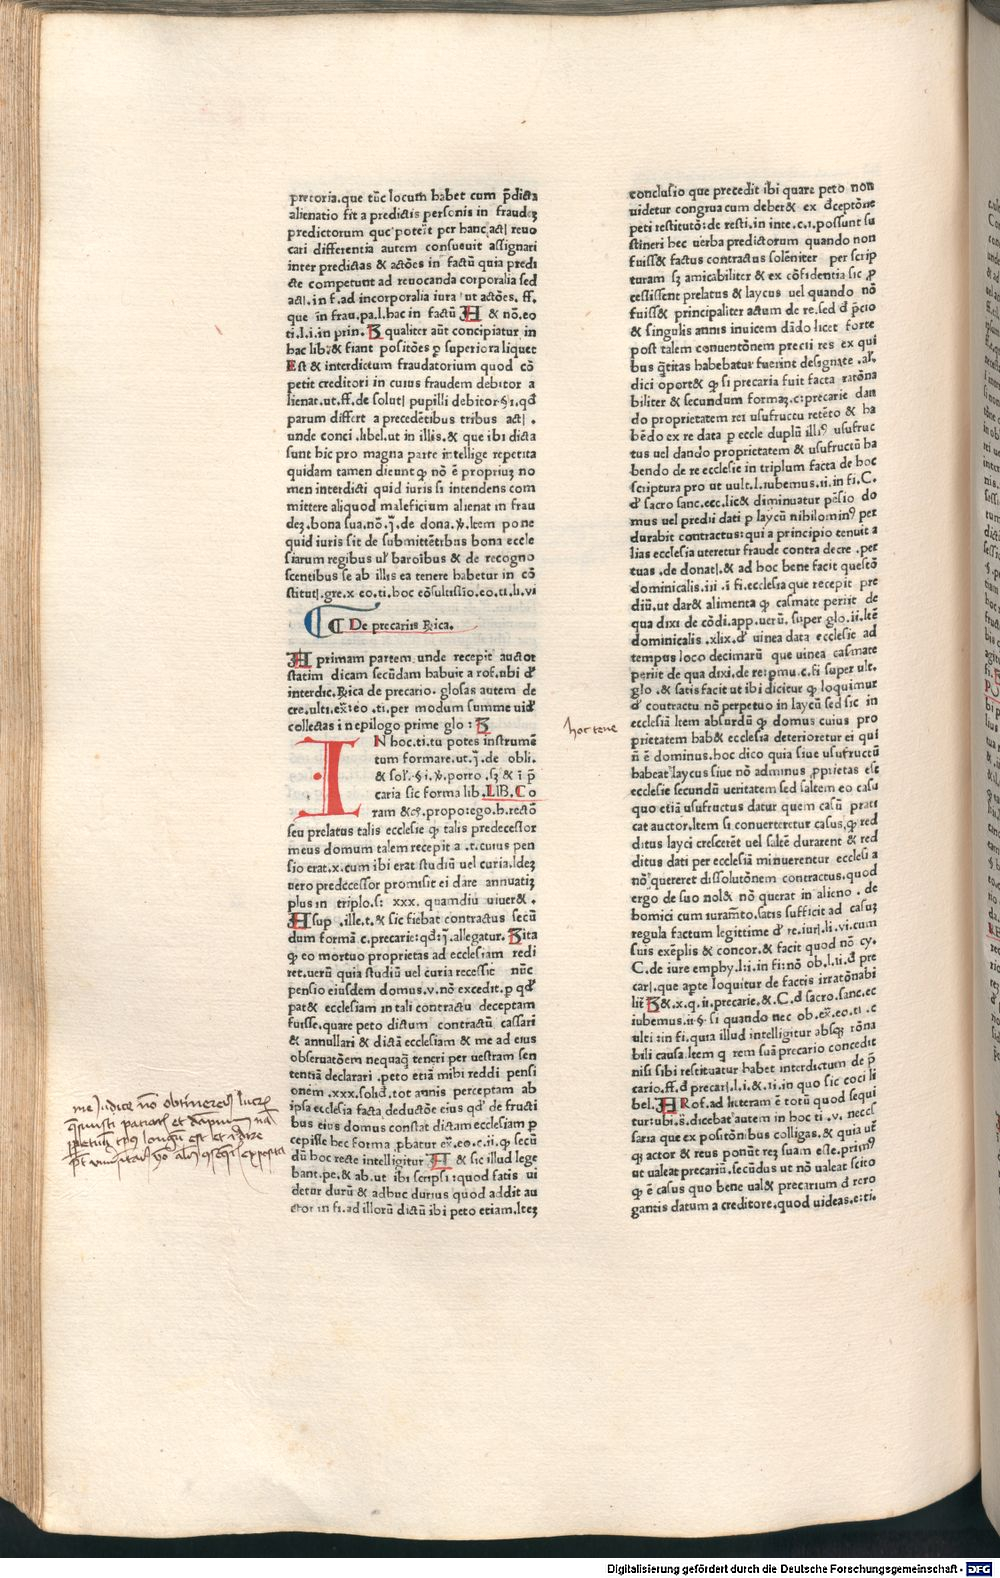 pretoria.que tūc locum habet cum p̄dicta
alienatio fit a predictis personis in fraudeꝫ
predictorum que poteīt per hanc actꝭ reuo
cari differentia autem consueuit assignari
inter predictas & actōes in factū quia predi
cte competunt ad reuocanda corporalia sed
actꝭ.in f.ad incorporalia iura ut actōes. ff.
que in frau.pa.l.hac in factū A & nō.eo
ti.l.i.in prin. B qualiter aūt concipiatur in
hac lib: & fiant positōes p superiora liquet
Est & interdictum fraudatorium quod cō
petit creditori in cuius fraudem debitor a
lienat.ut.ff.de solutꝭ pupilli debitor §i.qd̄
parum differt a precedētibus tribus actꝭ.
unde conci.libel.ut in illis.& que ibi dicta
sunt hic pro magna parte intellige repetita
quidam tamen dicunt ꝙ nō ē propriuꝫ no
men interdicti quid iuris si intendens com
mittere aliquod maleficium alienat in frau
deꝫ.bona sua.nō.j̄.de dona. ꝟ.Item pone
quid iuris sit de submittētibus bona eccle
siarum regibus ul' baroībus & de recogno
scentibus se ab illis ea tenere habetur in cō
stitutꝭ.gre.x eo.ti.hoc cōsultissīo.eo.ti.li.vi
De precariis Rica.
A primam partem unde recepit auctor
statim dicam secūdam habuit a rof.ubi d'
interdic.Rica de precario. glosas autem de
cre.ulti.ex̄:eo .ti.per modum summe uid'
collectas in epilogo prime glo : B
IN hoc.ti.tu potes instrumē
tum formare.ut.j̄.de obli.
& sol'.§i.ꝟ.porro .sꝫ & ī p̄
caria sic forma lib.LIB. Co
ram &c̄.propo:ego.h.rectō
seu prelatus talis ecclesie ꝙ talis predecessor
meus domum talem recepit a .t.cuius pen
sio erat.x.cum ibi erat studiū uel curia.Ideꝫ
uero predecessor promisit ei dare annuatiꝫ
plus in triplo.s: xxx. quamdiu uiuer& .
A sup .ille.t.& sic fiebat contractus secū
dum formā c.precarie:qd:j̄.allegatur. B ita
ꝙ eo mortuo proprietas ad ecclesiam redi
ret.uerū quia studiū uel curia recessit nūc
pensio eiusdem domus.v.nō excedit.p qd'
pat& ecclesiam in tali contractu deceptam
fuisse.quare peto dictum contractū cassari
& annullari & dictā ecclesiam & me ad eius
obseruatōem nequaꝙ teneri per uestram sen
tentiā declarari .peto etiā mihi reddi pensi
onem .xxx.solid.tot annis perceptam ab
ipsa ecclesia facta deductōe eius qd' de fructi
bus eius domus constat dictam ecclesiam p
cepisse hec forma pbatur ex̄.eo.c.ii.ꝙ secū
dū hoc recte intelligitur A & sic illud lege
bant.pe.& ab.ut ibi scripsi:quod satis ui
detur durū & adhuc durius quod addit au
ctor in fi.ad illorū dictū ibi peto etiam.Iteꝫ
conclusio que precedit ibi quare peto non
uidetur congrua cum deber& ex d'ceptōne
peti restitutō:de resti.in inte.c.i.possunt su
stineri hec uerba predictorum quando non
fuiss& factus contractus solēniter per scrip
turam sꝫ amicabiliter & ex cōfidentia sic p
cessissent prelatus & laycus uel quando nō
fuiss& principaliter actum de re.sed d' p̄cio
& singulis annis inuicem dādo licet forte
post talem conuentōnem precii res ex qui
bus q̄titas habebatur fuerint designate .al'.
dici oport& ꝙ si precaria fuit facta ratōna
biliter & secundum formaꝫ.c:precarie dan
do proprietatem rei usufructu retēto & ha
bēdo ex re data p eccle duplū illiꝰ usufruc
tus uel dando proprietatem & usufructū ha
bendo de re ecclesie in triplum facta de hoc
scriptura pro ut uult.l.iubemus.ii.in fi.C.
d' sacro sanc.ecc.lic& diminuatur pēsio do
mus uel predii dati p laycū nibilominꝰ per
durabit contractus:qui a principio tenuit a
lias ecclesia uteretur fraude contra decre .per
tuas .de donatꝭ.& ad hoc bene facit questō
dominicalis.iii .ī fi.ecclesia que recepit pre
diū.ut dar& alimenta ꝙ casmate periit de
qua dixi de cōdi.app.uerū. super glo.ii.Itē
dominicalis .xlix.d' uinea data ecclesie ad
tempus loco decimarū que uinea casmate
periit de qua dixi.de re:pmu.c.fi super ult.
glo .& satis facit ut ibi dicitur ꝙ loquimur
d' contractu nō perpetuo in laycū sed sic in
ecclesiā Item absurdū ꝙ domus cuius pro
prietatem hab& ecclesia deterioretur ei qui
n̄ ē dominus.hoc dico quia siue usufructū
habeat laycus siue nō adminus pprietas est
ecclesie secundū ueritatem sed saltem eo casu
quo etiā usufructus datur quem casū prati
cat auctor.Item si conuerteretur casus.ꝙ red
ditus layci crescerēt uel saltē durarent & red
ditus dati per ecclesiā minuerentur ecclesi a
nō quereret dissolutōnem contractus.quod
ergo de suo nol& nō querat in alieno . de
homici cum iuram̄to.satis sufficit ad casuꝫ
regula factum legittime d' re.iurꝭ.li.vi.cum
suis exēplis & concor.& facit quod nō cy.
C.de iure emphy.l:i.in fi:nō ob.l.ii.d' pre
carꝭ.que apte loquitur de factis irratōnabi
lit̄ B &.x.q.ii.precarie.&.C.d' sacro.sanc.ec
iubemus.ii § si quando nec ob.ex̄.eo.ti .c
ulti :in fi.quia illud intelligitur absqꝫ rōna
bili causa.Item q rem suā precario concedit
nisi sibi restituatur habet interdictum de p̄
cario.ff.d' precarꝭ.l.i.& .ii.in quo sic coci li
bel. A Rof.ad litteram ē totū quod sequi
tur:ubi.s̄.dicebat autem in hoc ti .v. neces
saria que ex positōnibus colligas.& quia ut̄
qꝫ actor & reus ponūt reꝫ suam esse.primꝰ
ut ualeat precariū.secūdus ut nō ualeat scito
ꝙ ē casus quo bene ual& precarium d' re:ro
gantis datum a creditore.quod uideas.e:ti.
hoc tene
me Judice nō obtineret